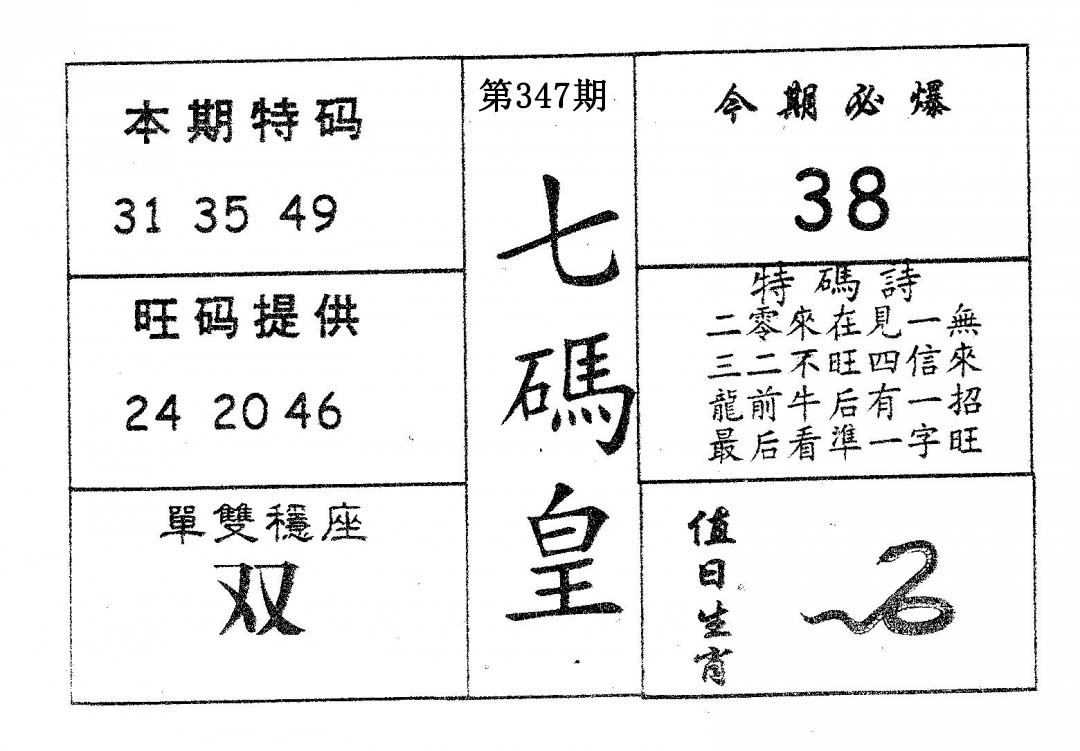 本期特码
31 35 49
旺码提供
24 20 46
單雙穩座
双
第347期
七碼皇
今期必爆
38
特碼詩
二零來在見一無
三二不旺四信來
龍前牛后有一招
最后看準一字旺
值日生肖